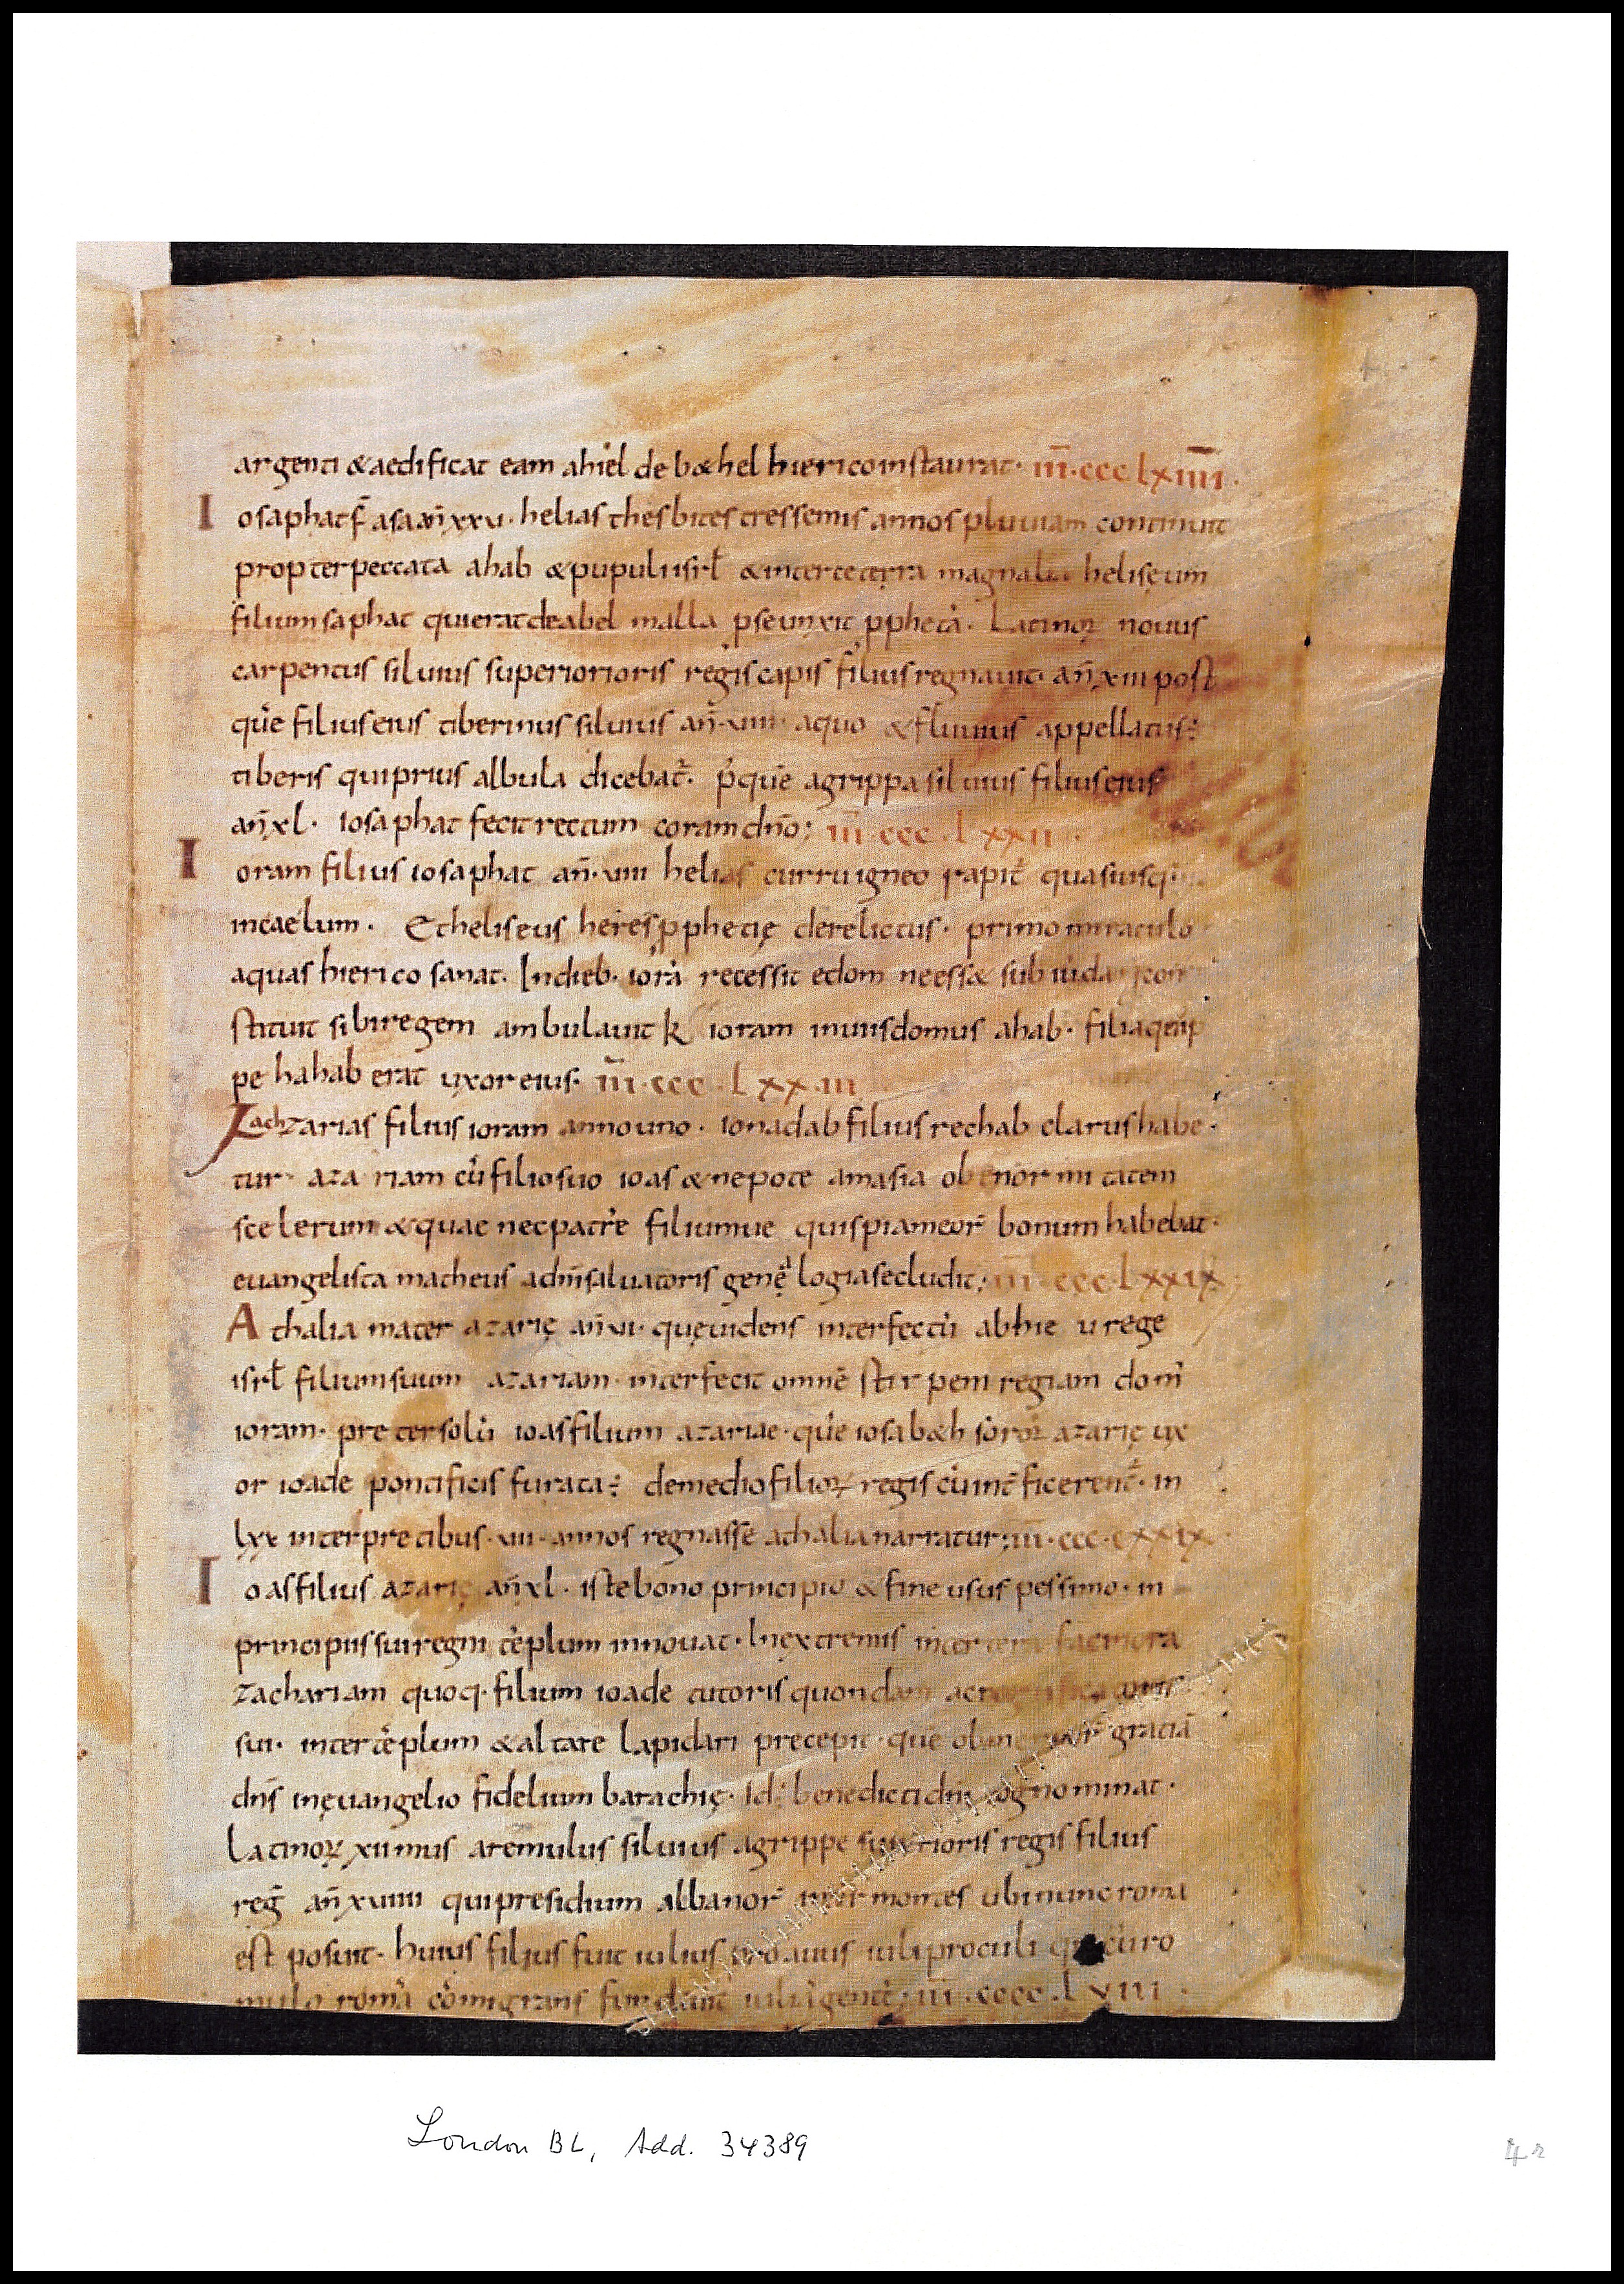 argenti &aedificat eam ahiel de b&hel hiericoinstaurat· III̅·ccclxiiii·
Iosaphat f̄ asa an̄xxv· helias thesbites tressemis annos pluuiam continuit
propterpeccata ahab &pupuliisrł &intercetęra magnalia heliseum
filiumsaphat quieratdeabel malla pseunxit pphetā· Latinoꝝ nouus
carpentus siluius superiorioris regiscapis filiusregnauit· an̄xiii post
quē filiuseius tiberinus siluius an̄·viiii· aquo &fluuius appellatus÷
tiberis quiprius albula dicebat̄· p̓quē agrippasiluius filiuseius
an̄xl· iosaphat fecitrectum coramdn̄o; III̅·ccc·lxxii·
Ioram filius iosaphat an̄·viii helias curruigneo rapit̄ quasiusq·
incaelum· Etheliseus herespphetię derelictus· primo miraculo
aquas hierico sanat· Indieb· iorā recessit edom neess& sub iuda
stituit sibiregem ambulauit k ioram inuiisdomus ahab· filiaquip
pe hahab erat uxoreius· III̅·ccc·lxxiii
Iachzarias filius ioram announo· ionadab filius rechab clarushabe·
tur· azariam cūfiliosuo ioas &nepote amasia ob enormitatem
scelerum &quae necpatre filiumue quispiameor̄ bonumhabebat·
euangelista matheus adn̄isaluatoris genęlogiasecludit; III̅·ccc·lxxix
Athalia mater azarię an̄vi· quęuidens interfectū abhie urege
isrł filiumsuum azariam· interfecit omnē stirpem regiam dom̄
ioram· pretersolū ioasfilium azariae· quē iosab&h soror azarię ux
or ioade pontificis furata÷ demediofilioꝝ regis cūint̄ficerent̄· in
lxx interpretibus·vii·annos regnasse athalianarratur; III̅·ccc·cxxix
Ioasfilius azarię an̄xl· istebono principio &fine usus pessimo· in
principiissuiregni tēplum innouat· Inextremis intercetera facinora
zachariam quoq· filium ioade tutoris quondam
sui· intertēplum &altare lapidari precepit· quē ob gratiā
dn̄s inęuangelio fidelium barachię· Id÷ benedictidn̄i cognominat·
Latinoꝝ xiimus aremulus siluius agrippe superioris regis filius
reg̅ an̄xviiii quipresidium albanor̄ inter montes ubinuncroma
est posuit· huius filius fuit iulius proauus iuliiproculi cūro
mulo romā cōmigrans fundauit iuliāgentē; III̅·cccc·lxiii·
London BL, Add. 34389
4r